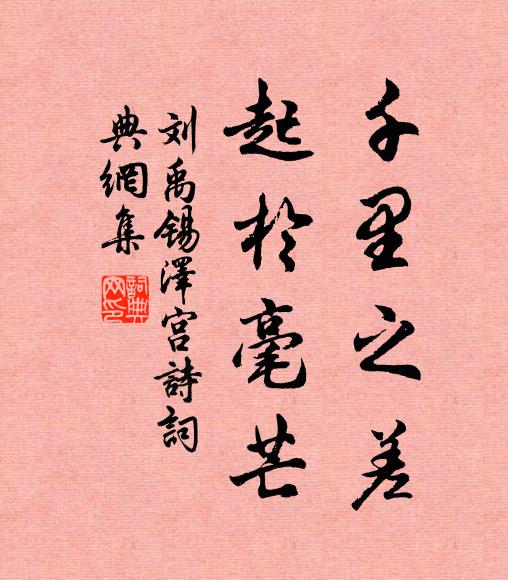 千里之差
起於毫芒
刘禹锡澤宫詩詞
典網集
詞典
网印